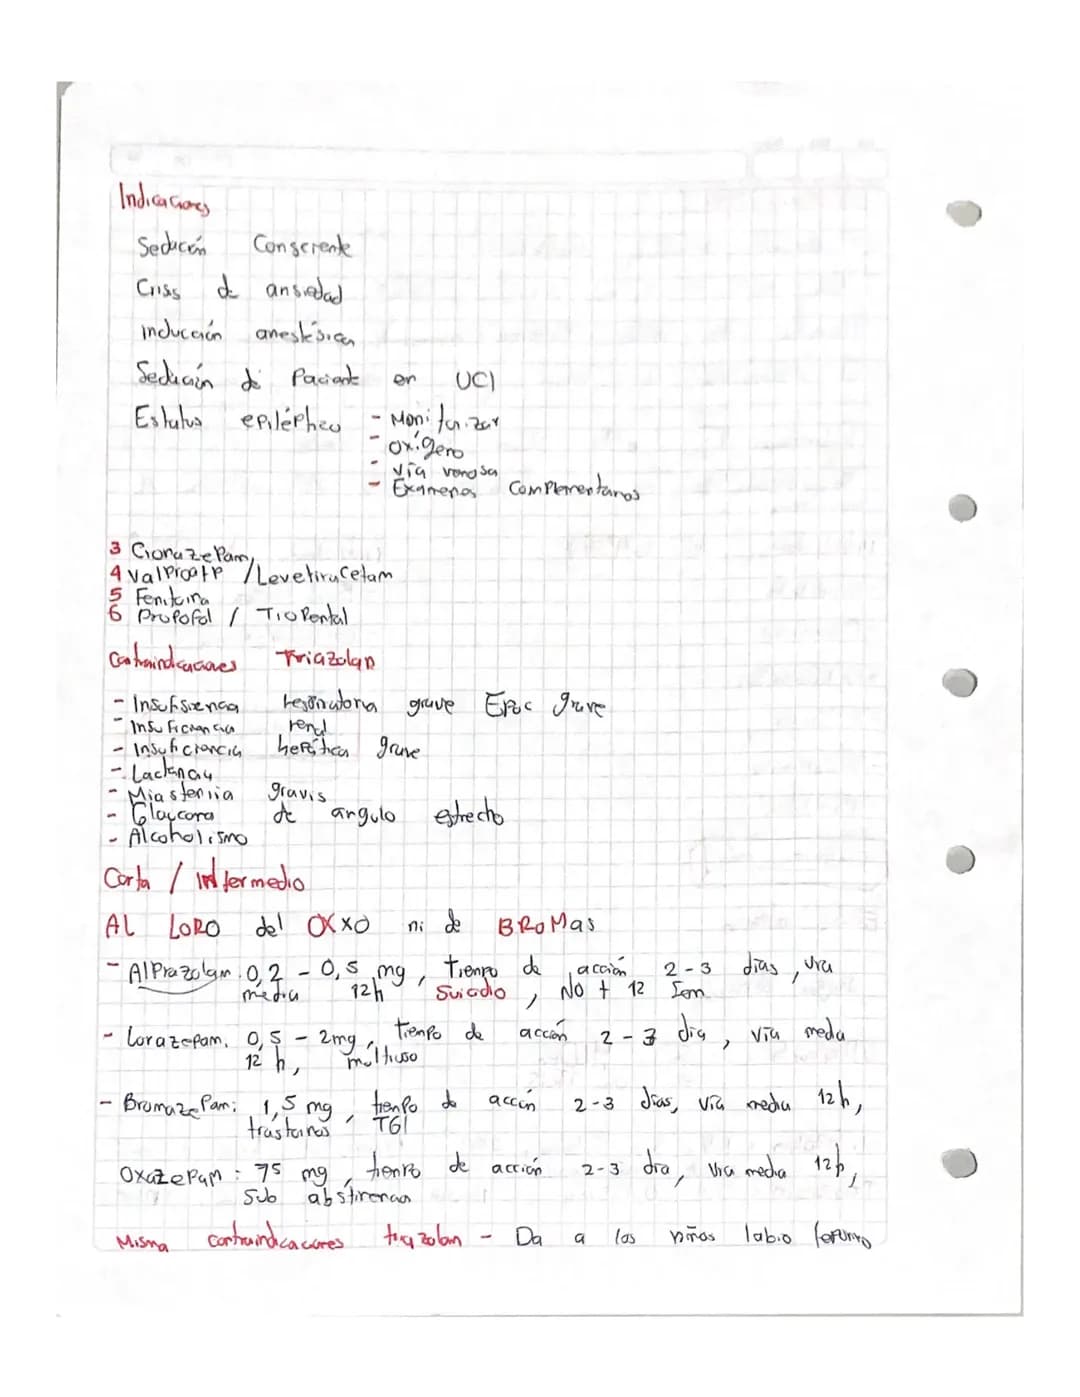 Indicaciones
Sedación Consciente
Crisis de ansiedad
inducción anestésica
Sedación de Paciente en UCI
Estatus epiléptico - Monitorizar
- Oxígeno
- Vía venosa
- Examenes Complementarios
3 Clonazepam,
4 Valproato / Levetiracetam
5 Fenitoina
6 Propofol / Tiopental
Contraindicaciones Triazolan
- Insuficiencia respiratoria grave Epoc grave
- Insuficiencia renal
- Insuficiencia hepática grave
- Lactancia
- Miastenia gravis
- Glaucoma de angulo estrecho
- Alcoholismo
Corta / Intermedio
AL LORO del OXXO ni de BROMAS
- Alprazolam: 0,2 - 0,5 mg, Tiempo de acción 2-3 días, vía
media 12h Suicidio, No + 12 Sem
- Lorazepam. 0,5 - 2mg, tiempo de acción 2-3 día, vía media
12 h, multiuso
- Bromazepam: 1,5 mg, tiempo de acción 2-3 días, vía media 12h,
trastornos TGI
Oxazepam: 75 mg, tiempo de acción 2-3 día, vía media 12h,
Sub abstinencia
Misma contraindicaciones triazolan - Da a los niños labio leporino